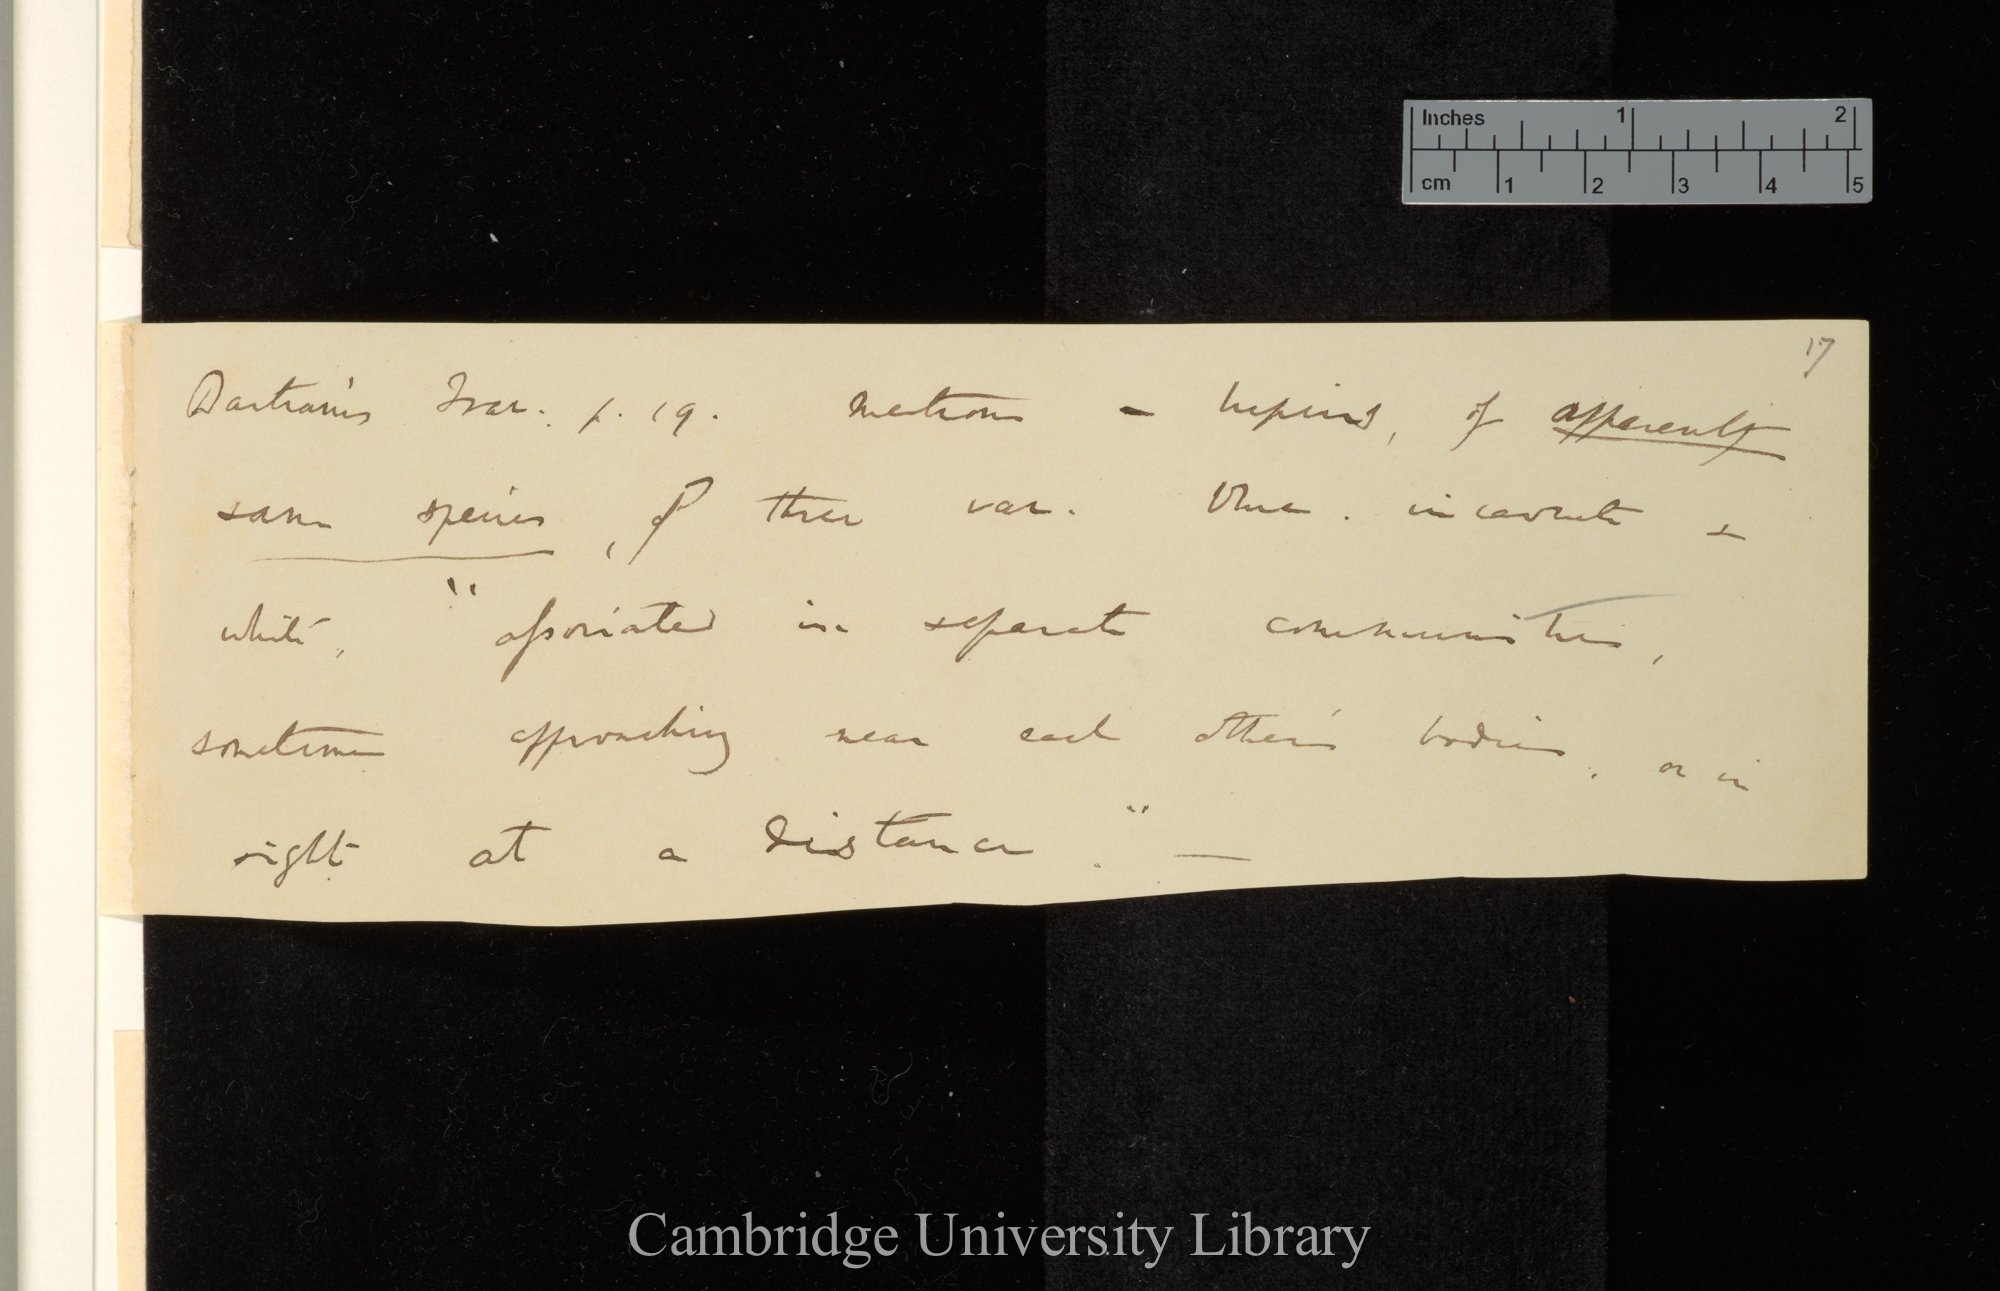 Inches 1 2
cm 1 2 3 4 5
17
Bartram's Trav. p. 19. mentions a lupins, of apparently
same species, of three var. blue. incarnate &
white, "associated in separate communities,
sometimes approaching near each other's bodies, or in
sight at a distance." —
Cambridge University Library